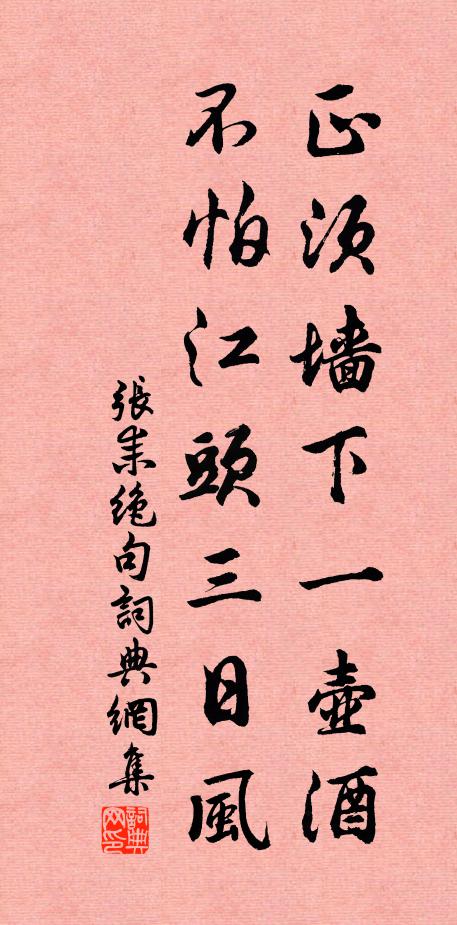 正须墙下一壶酒
不怕江頭三日風
張耒绝句詞典網集
詞典网印